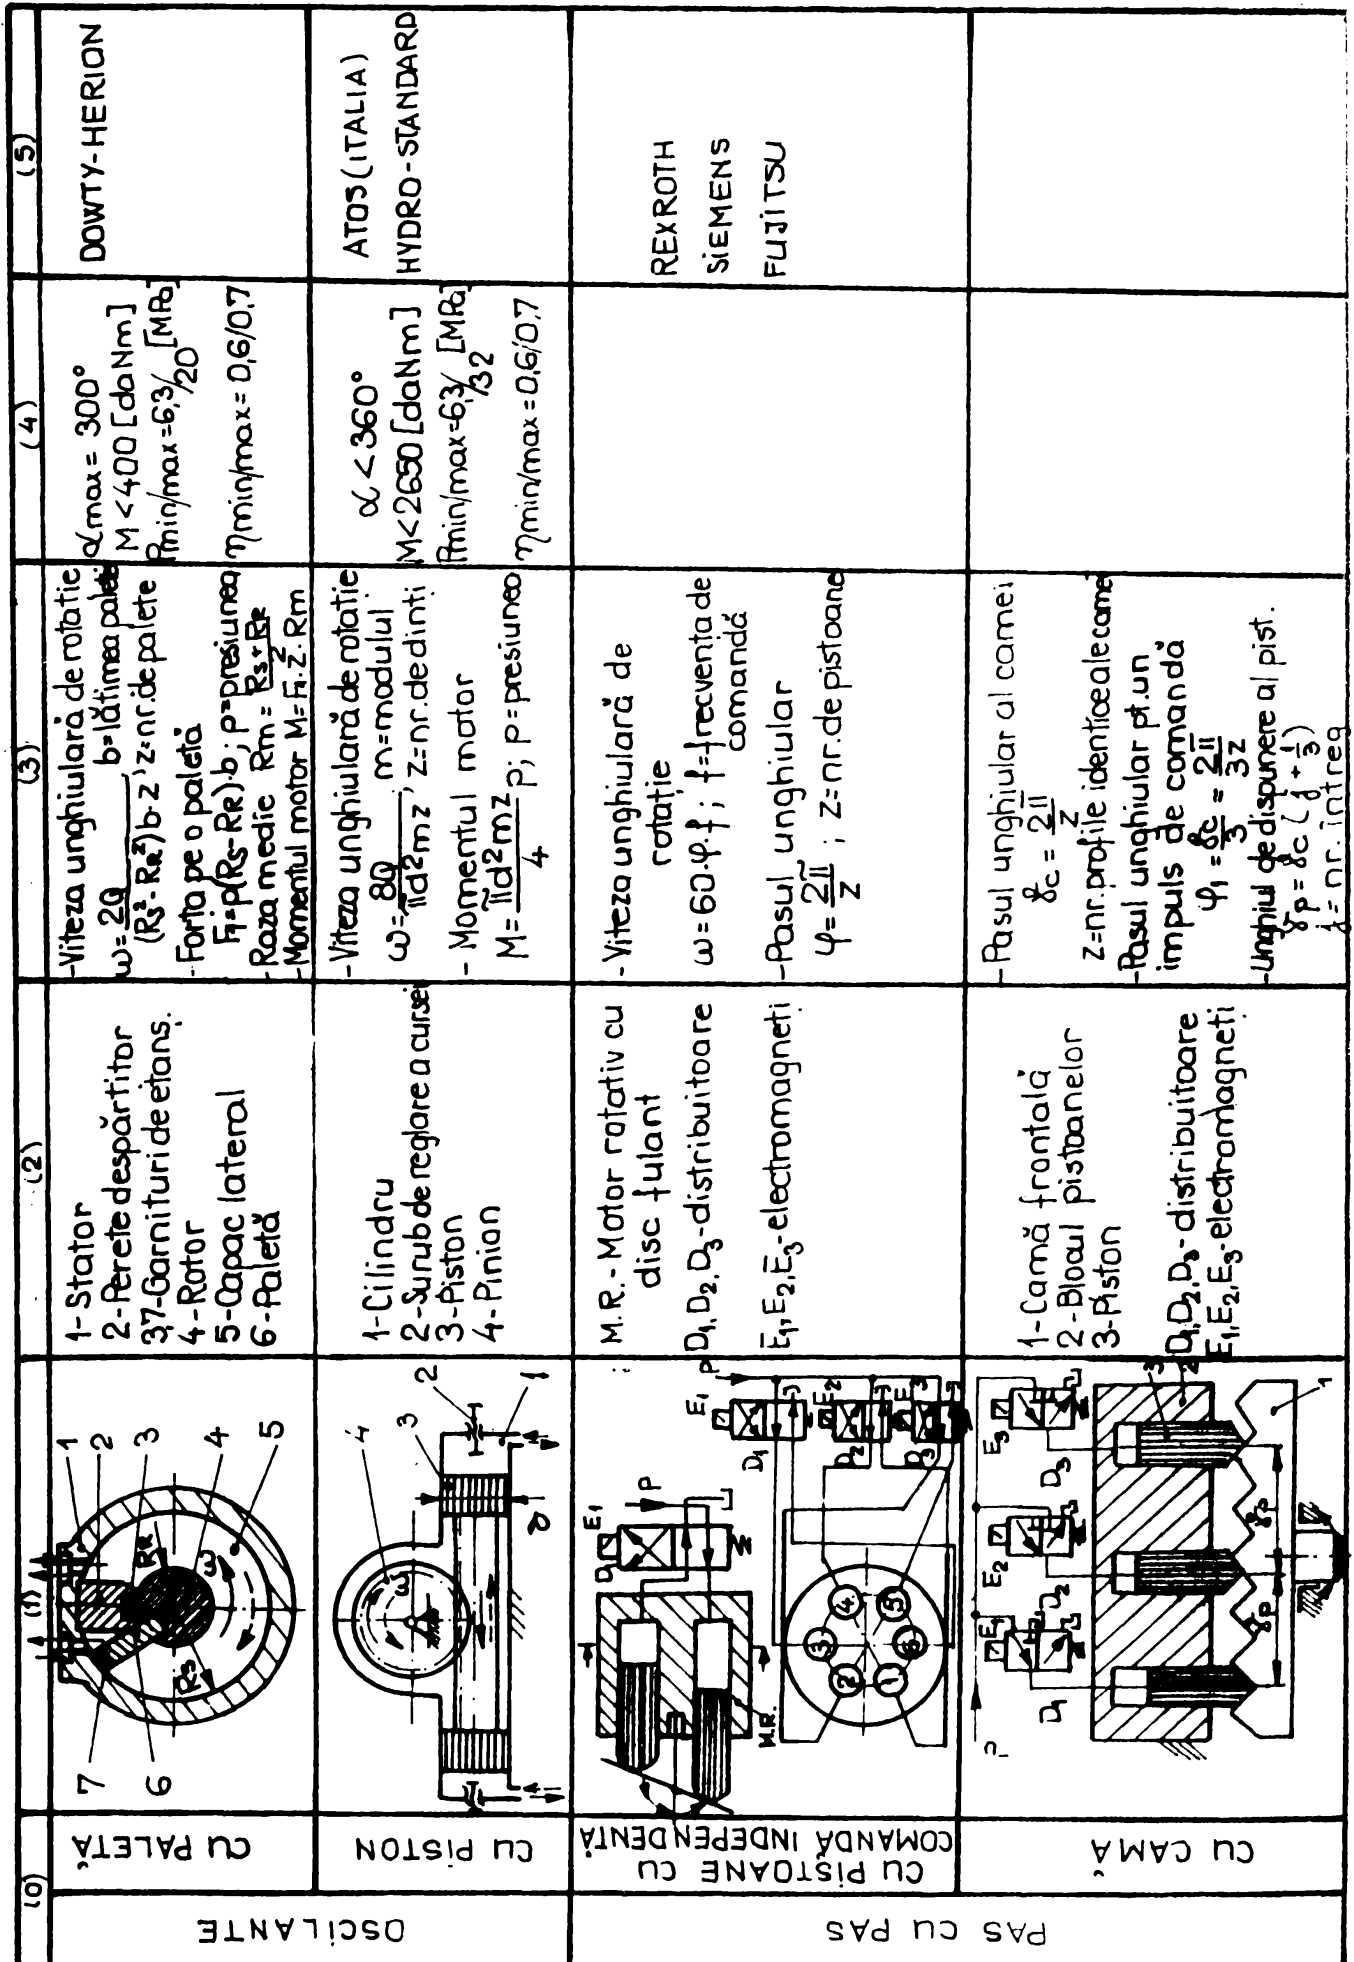 (0)
(1)
(2)
(3)
(4)
(5)
OSCILANTE
CU PALETĂ
1
2
3
4
5
7
6
RR
RS
ω
1-Stator
2-Perete despărtitor
3,7-Garnituri de etanș.
4-Rotor
5-Capac lateral
6-Paletă
-Viteza unghiulară de rotatie
ω=2Q/(Rs²-RR²)b·z, b=lătimea paletei
z=nr.de palete
-Forta pe o paletă
F1=p(Rs-RR)·b; p=presiunea
-Raza medie Rm=(Rs+RR)/2
-Momentul motor M=F1·Z·Rm
αmax=300°
M<400[daNm]
Pmin/max=6,3/20[MPa]
ηmin/max=0,6/0,7
DOWTY-HERION
CU PISTON
4
3
2
1
ω
d
1-Cilindru
2-Surub de reglare a cursei
3-Piston
4-Pinion
-Viteza unghiulară de rotatie
ω=8Q/πd²mz, m=modulul
z=nr.de dinti
-Momentul motor
M=πd²mz/4 p; p=presiunea
α<360°
M<2650[daNm]
Pmin/max=6,3/32[MPa]
ηmin/max=0,6/0,7
ATOS(ITALIA)
HYDRO-STANDARD
PAS CU PAS
CU PISTOANE CU
COMANDĂ INDEPENDENTĂ
D1
E1
P
M.R.
1
2
3
4
5
6
E1
E2
E3
D1
D2
D3
P
M.R.-Motor rotativ cu
disc fulant
D1,D2,D3-distribuitoare
E1,E2,E3-electromagneti
-Viteza unghiulară de
rotație
ω=60·φ·f; f=frecventa de
comandă
-Pasul unghiular
φ=2π/z; z=nr.de pistoane
REXROTH
SIEMENS
FUJITSU
CU CAMĂ
P
E1
E2
E3
D1
D2
D3
3
2
1
γp
γp
1-Camă frontală
2-Blocul pistoanelor
3-Piston
D1,D2,D3-distribuitoare
E1,E2,E3-electromagneti
-Pasul unghiular al camei
γc=2π/z
z=nr.profile identice ale camei
-Pasul unghiular pt.un
impuls de comandă
φ1=γc/3=2π/3z
-Unghiul de dispunere al pist.
γp=γc(j+1/3)
j=nr. intreg